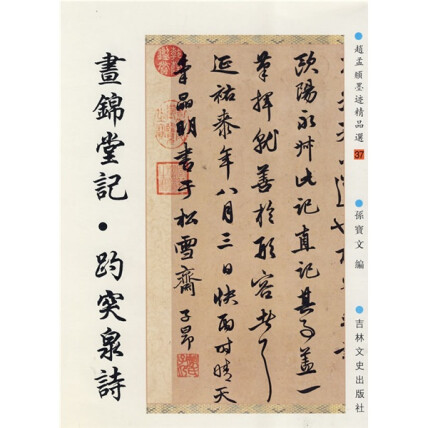 趙孟頫墨迹精品選 37
孫寶文 編
吉林文史出版社
歐陽永叔此記直記其事蓋一
筆揮就善於形容者
延祐年八月三日快雨時晴天
書于松雪齋 子昂
晝錦堂記·趵突泉詩